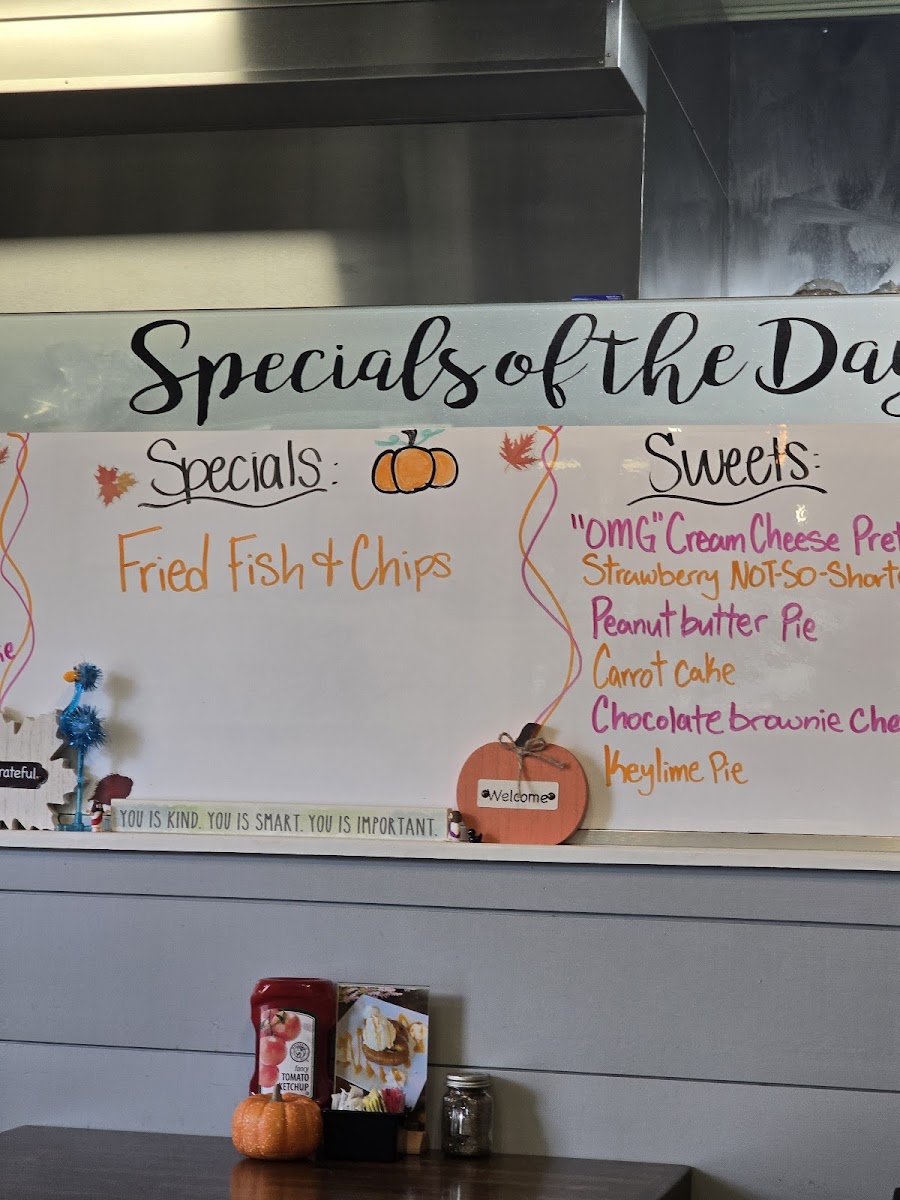 Specials of the Day
Specials:
Fried Fish & Chips
Sweets:
"OMG" Cream Cheese
Strawberry NOT-SO-
Peanut butter Pie
Carrot cake
Chocolate brownie
Keylime Pie
Welcome
YOU IS KIND. YOU IS SMART. YOU IS IMPORTANT.
fancy
TOMATO
KETCHUP